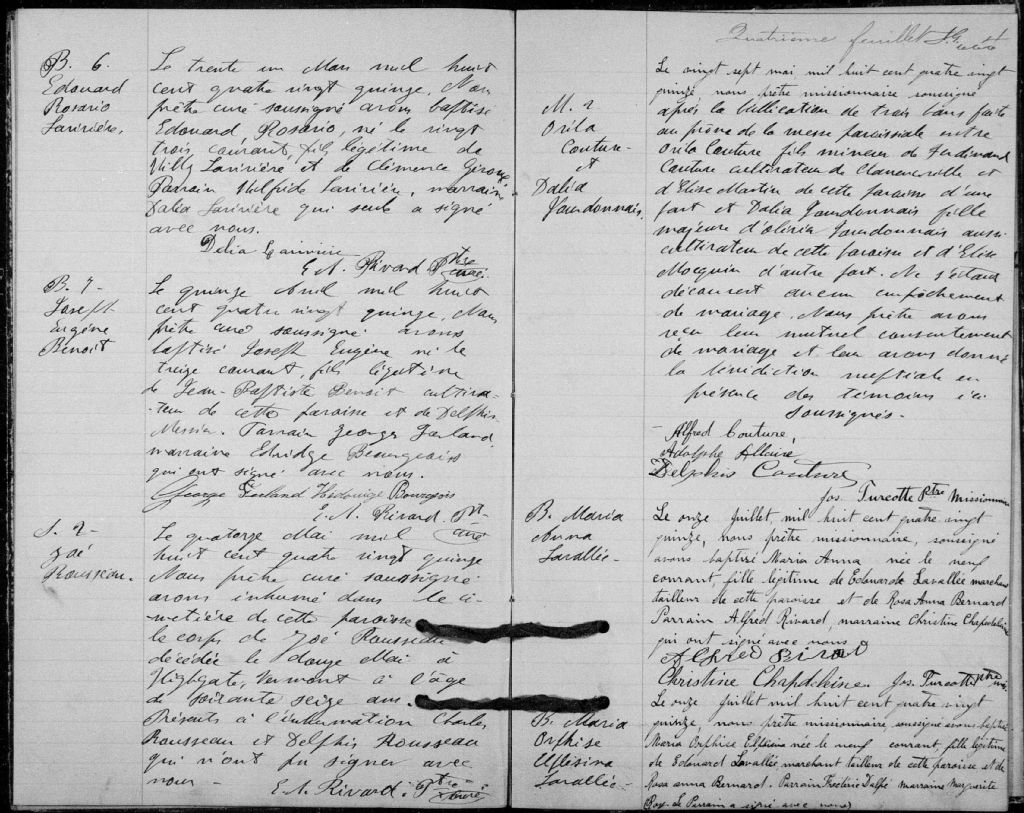 B. 6.
Edouard
Rosario
Larivière.
Le trente un Mars mil huit
cent quatre vingt quinze, Nous
prêtre curé soussigné avons baptisé
Edouard, Rosario, né le vingt
trois courant, fils légitime de
Willy Larivière et de Clémence Giroux.
Parrain Wilfride Larivière, marraine
Dalia Larivière qui seule a signé
avec nous.
Delia Lariviere
E. A. Rivard Ptre
curé.
B. 7-
Joseph
Eugène
Benoit
Le quinze Avril mil huit
cent quatre vingt quinze, Nous
prêtre curé soussigné avons
baptisé Joseph Eugène né le
treize courant, fils légitime
de Jean-Baptiste Benoit cultiva-
-teur de cette paroisse et de Delphis
Messier. Parrain George
marraine Edridge Bourgeois
qui ont signé avec nous.
George Hedwige Bourgeois
E. A. Rivard. Pt
curé
S. 2-
Zoé
Rousseau-
Le quatorze Mai mil
huit cent quatre vingt quinze
Nous prêtre curé soussigné
avons inhumé dans le ci-
-metière de cette paroisse
le corps de Zoé Rousseau
décédée le douze Mai à
Highgate, Vermont à l'âge
de soixante seize ans.
Présents à l'inhumation Charles
Rousseau et Delphis Rousseau
qui n'ont pu signer avec
nous-
E. A. Rivard. Ptre
curé
Quatrième feuillet
M. 2
Orila
Couture-
et
Dalia
Jourdonnais.
Le vingt sept mai mil huit cent quatre vingt
quinze nous prêtre missionnaire soussigné
après la publication de trois bans faite
au prône de la messe paroissiale entre
Orila Couture fils mineur de Ferdinand
Couture cultivateur de Clarenceville et
d'Elise Martin de cette paroisse d'une
part et Dalia Jourdonnais fille
majeure d'Olivier Jourdonnais aussi
cultivateur de cette paroisse et d'Elise
Mocquin d'autre part. Ne s'étant
découvert aucun empêchement
de mariage. Nous prêtre avons
reçu leur mutuel consentement
de mariage et leur avons donné
la bénédiction nuptiale en
présence des témoins ici
soussignés-
Alfred Couture,
Adolphe Allaire
Delphis Couture
Jos. Turcotte Ptre Missionnaire
B. Maria
Anna
Lavallée-
Le onze Juillet, mil huit cent quatre vingt
quinze, nous prêtre missionnaire, soussigné
avons baptisé Maria Anna née le neuf
courant, fille légitime de Edouarde Lavallée marchand
tailleur de cette paroisse et de Rosa Anna Bernard
Parrain Alfred Rivard, marraine Christine Chapdelaine
qui ont signé avec nous
Alfred
Christine Chapdelaine. Jos. Turcotte Ptre mis.
B. Maria
Orphise
Lavallée-
Le onze Juillet mil huit cent quatre vingt
quinze nous prêtre missionnaire, soussigné avons baptisé
Maria Orphise née le neuf courant, fille légitime
de Edouard Lavallée, marchand tailleur de cette paroisse et de
Rosa anna Bernard. Parrain Frederic Dalpé marraine Marguerite
Roy. Le Parrain a signé avec nous